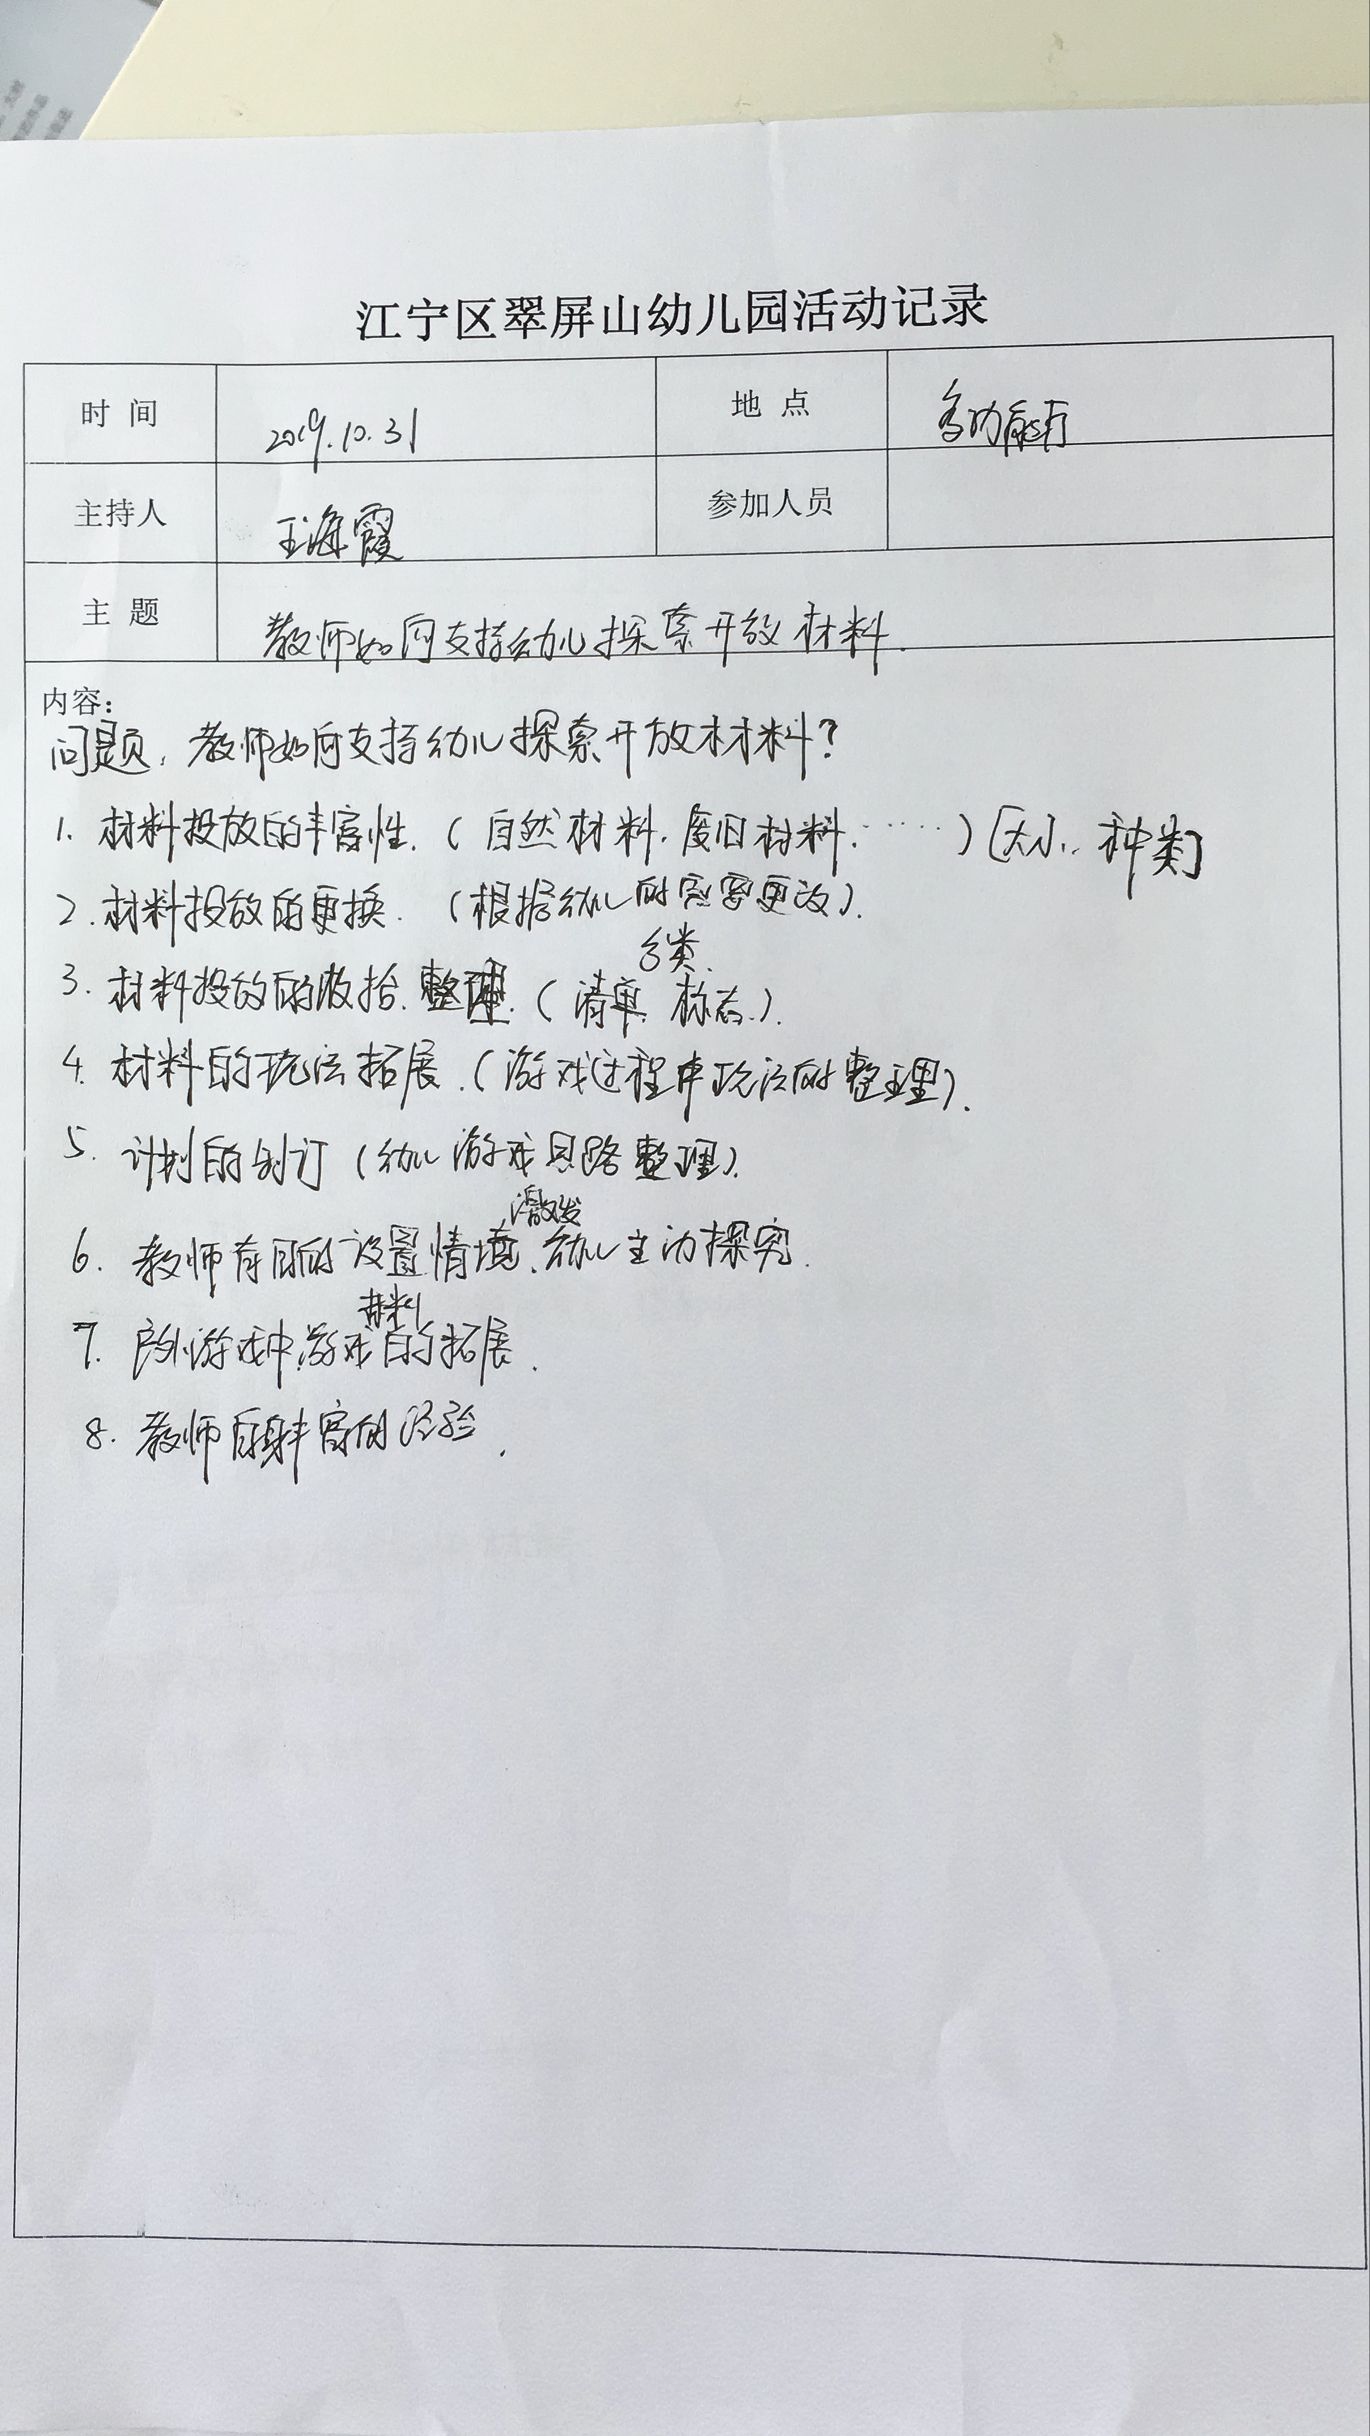 江宁区翠屏山幼儿园活动记录
时 间 2019.10.31 地 点 多功能厅
主持人 王海霞 参加人员
主 题 教师如何支持幼儿探索开放材料.
内容:
问题, 教师如何支持幼儿探索开放材料?
1. 材料投放的丰富性.(自然材料.废旧材料.……)[大小.种类]
2. 材料投放的更换.(根据幼儿的需要更改).
分类.
3. 材料投放的收拾.整理.(清单.标志.).
4. 材料的玩法拓展.(游戏过程中玩法的整理).
5. 计划的制订(幼儿游戏思路整理).
激发
6. 教师有目的设置情境.幼儿主动探究.
材料
7. 户外游戏中游戏的拓展.
8. 教师自身丰富的经验.